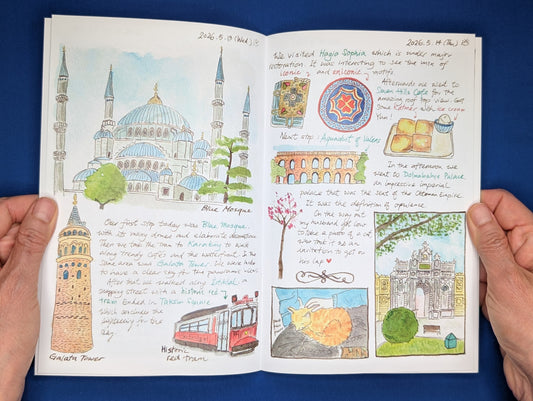 2026.5.13 (Wed)
Blue Mosque
Our first stop today was Blue Mosque,
with its many domes and elaborate decoration
Then we took the tram to Karaköy to walk
along trendy cafes and the waterfront. In the
same area was Galata Tower. We were able
to have a clear sky for the panoramic view.
After that we walked along Istiklal, a
shopping street with a historic red
tram. Ended in Taksim Square
Which concludes the
for the
day.
Galata Tower
Historic
red tram
2026.5.14 (Thu)
We visited Hagia Sophia which is under major
restoration. It was interesting to see the mix of
iconic and aniconic motifs.
Afterwards we went to
Seven Hills Cafe for the
amazing roof top view. Got
some Katmer with ice cream
Yum!
Next stop: Aqueduct of Valens
In the afternoon we
went to Dolmabahçe Palace,
an impressive imperial
palace that was the seat of the Ottoman Empire.
It was the definition of opulence.
On the way out
my husband got low
to take a photo of a cat
who took it as an
invitation to get on
his lap